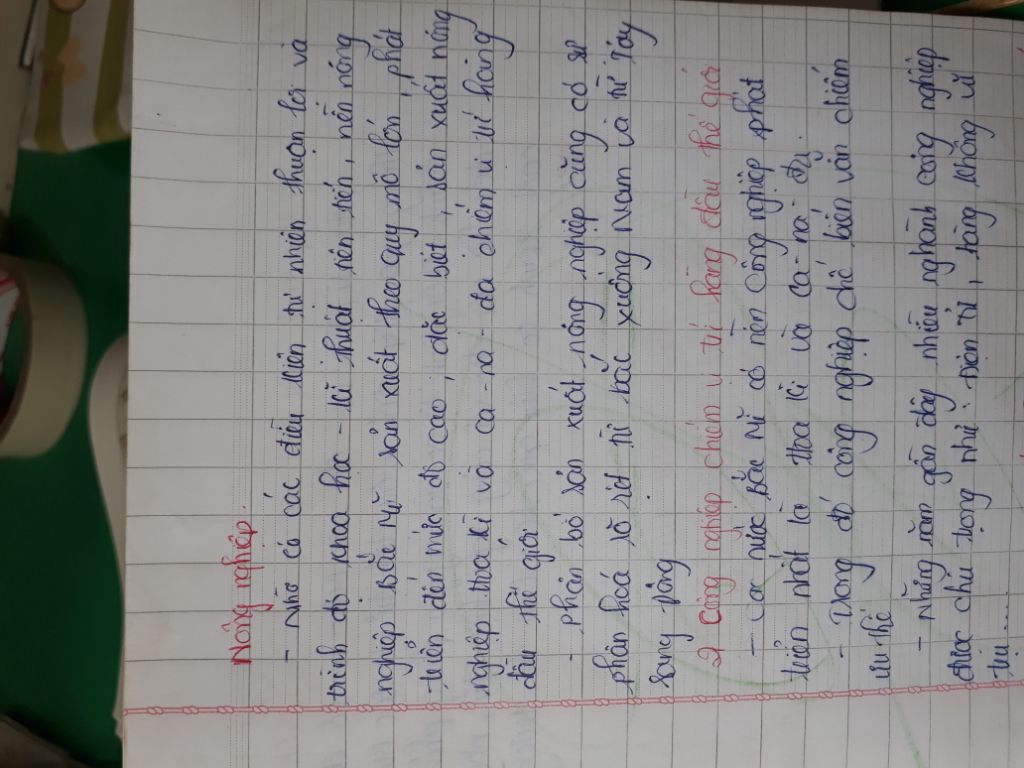 Nông nghiệp.
- Nhờ có các điều kiện tự nhiên thuận lợi và
trình độ khoa học - kĩ thuật tiên tiến, nền nông
nghiệp Bắc Mĩ sản xuất theo quy mô lớn, phát
triển đến mức độ cao, đặc biệt, sản xuất nông
nghiệp Hoa Kì và ca-na-đa chiếm vị trí hàng
đầu thế giới.
- Phân bố sản xuất nông nghiệp cũng có sự
phân hoá rõ rệt từ bắc xuống Nam và từ Tây
sang Đông
2 Công nghiệp chiếm vị trí hàng đầu thế giới
- Các nước Bắc Mĩ có nền công nghiệp phát
triển nhất là Hoa Kì và Ca-na-đa.
- Trong đó công nghiệp chế biến vẫn chiếm
ưu thế
- Những năm gần đây nhiều nghành công nghiệp
được chú trọng như: điện tử, hàng không vũ
trụ.....